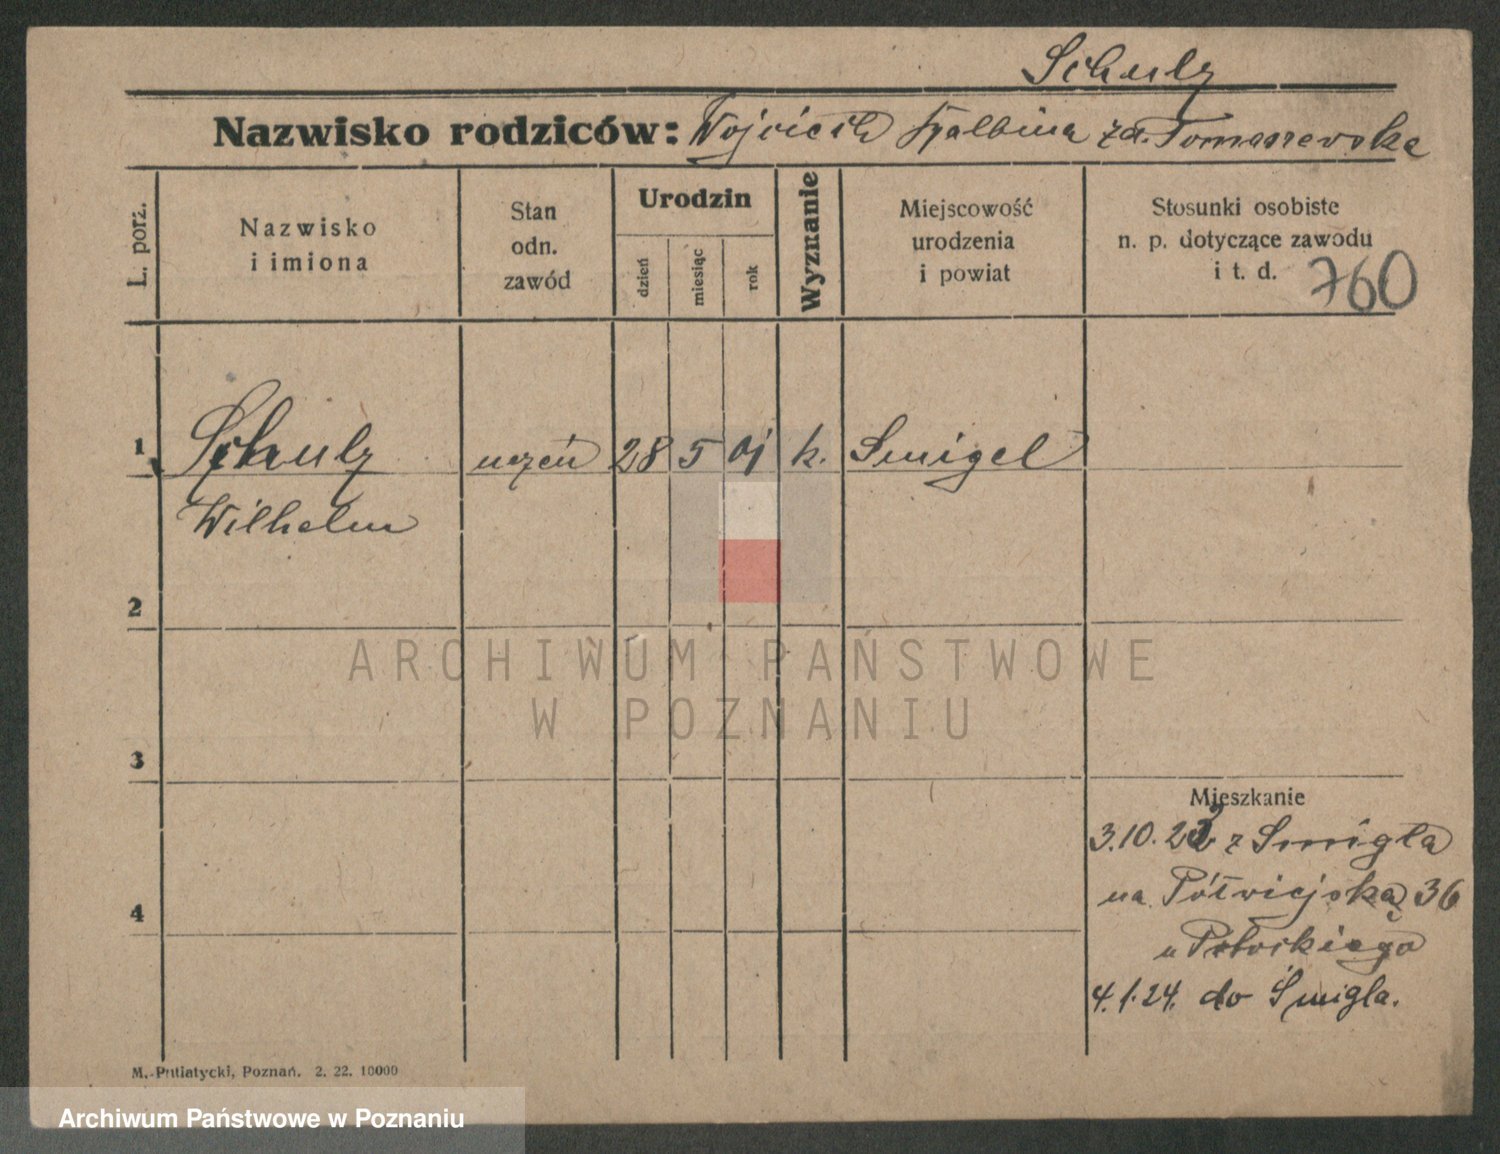 Schulz
Nazwisko rodziców: Wojciech Balbina zd. Tomaszewska
L. porz.
Nazwisko
i imiona
Stan
odn.
zawód
Urodzin
dzień
miesiąc
rok
Wyznanie
Miejscowość
urodzenia
i powiat
Stosunki osobiste
n. p. dotyczące zawodu
i t. d.
760
1 Schulz uczeń 28 5 01 k. Smigel
Wilhelm
2
3
4
Mieszkanie
3.10.22 z Smigla
na Półwiejską 36
u
4.1.24. do Śmigla.
M. Putiatycki, Poznań. 2. 22. 10000
ARCHIWUM PAŃSTWOWE
W POZNANIU
Archiwum Państwowe w Poznaniu